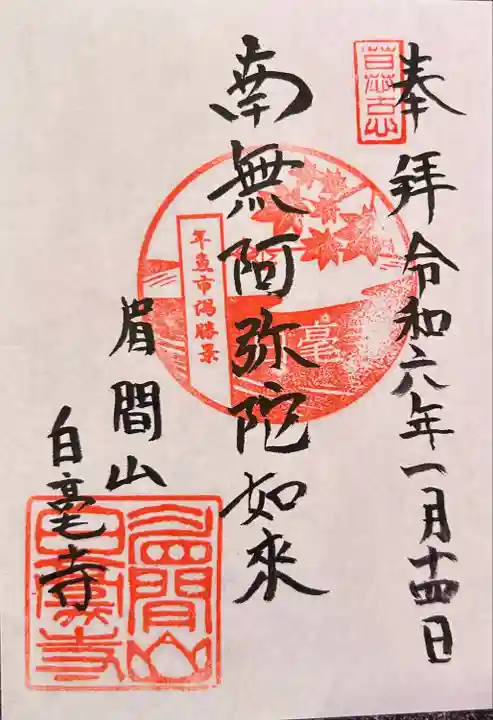 奉拜 令和六年一月十四日
南無阿弥陀如來
年魚市潟勝景
白毫
眉間山
白毫寺
眉間山
白毫寺